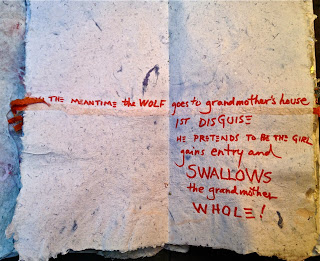 THE MEANTIME the WOLF goes to grandmother's house
1ST DISGUISE
HE PRETENDS TO BE THE GIRL
gains entry and
SWALLOWS
the grandmother
WHOLE!